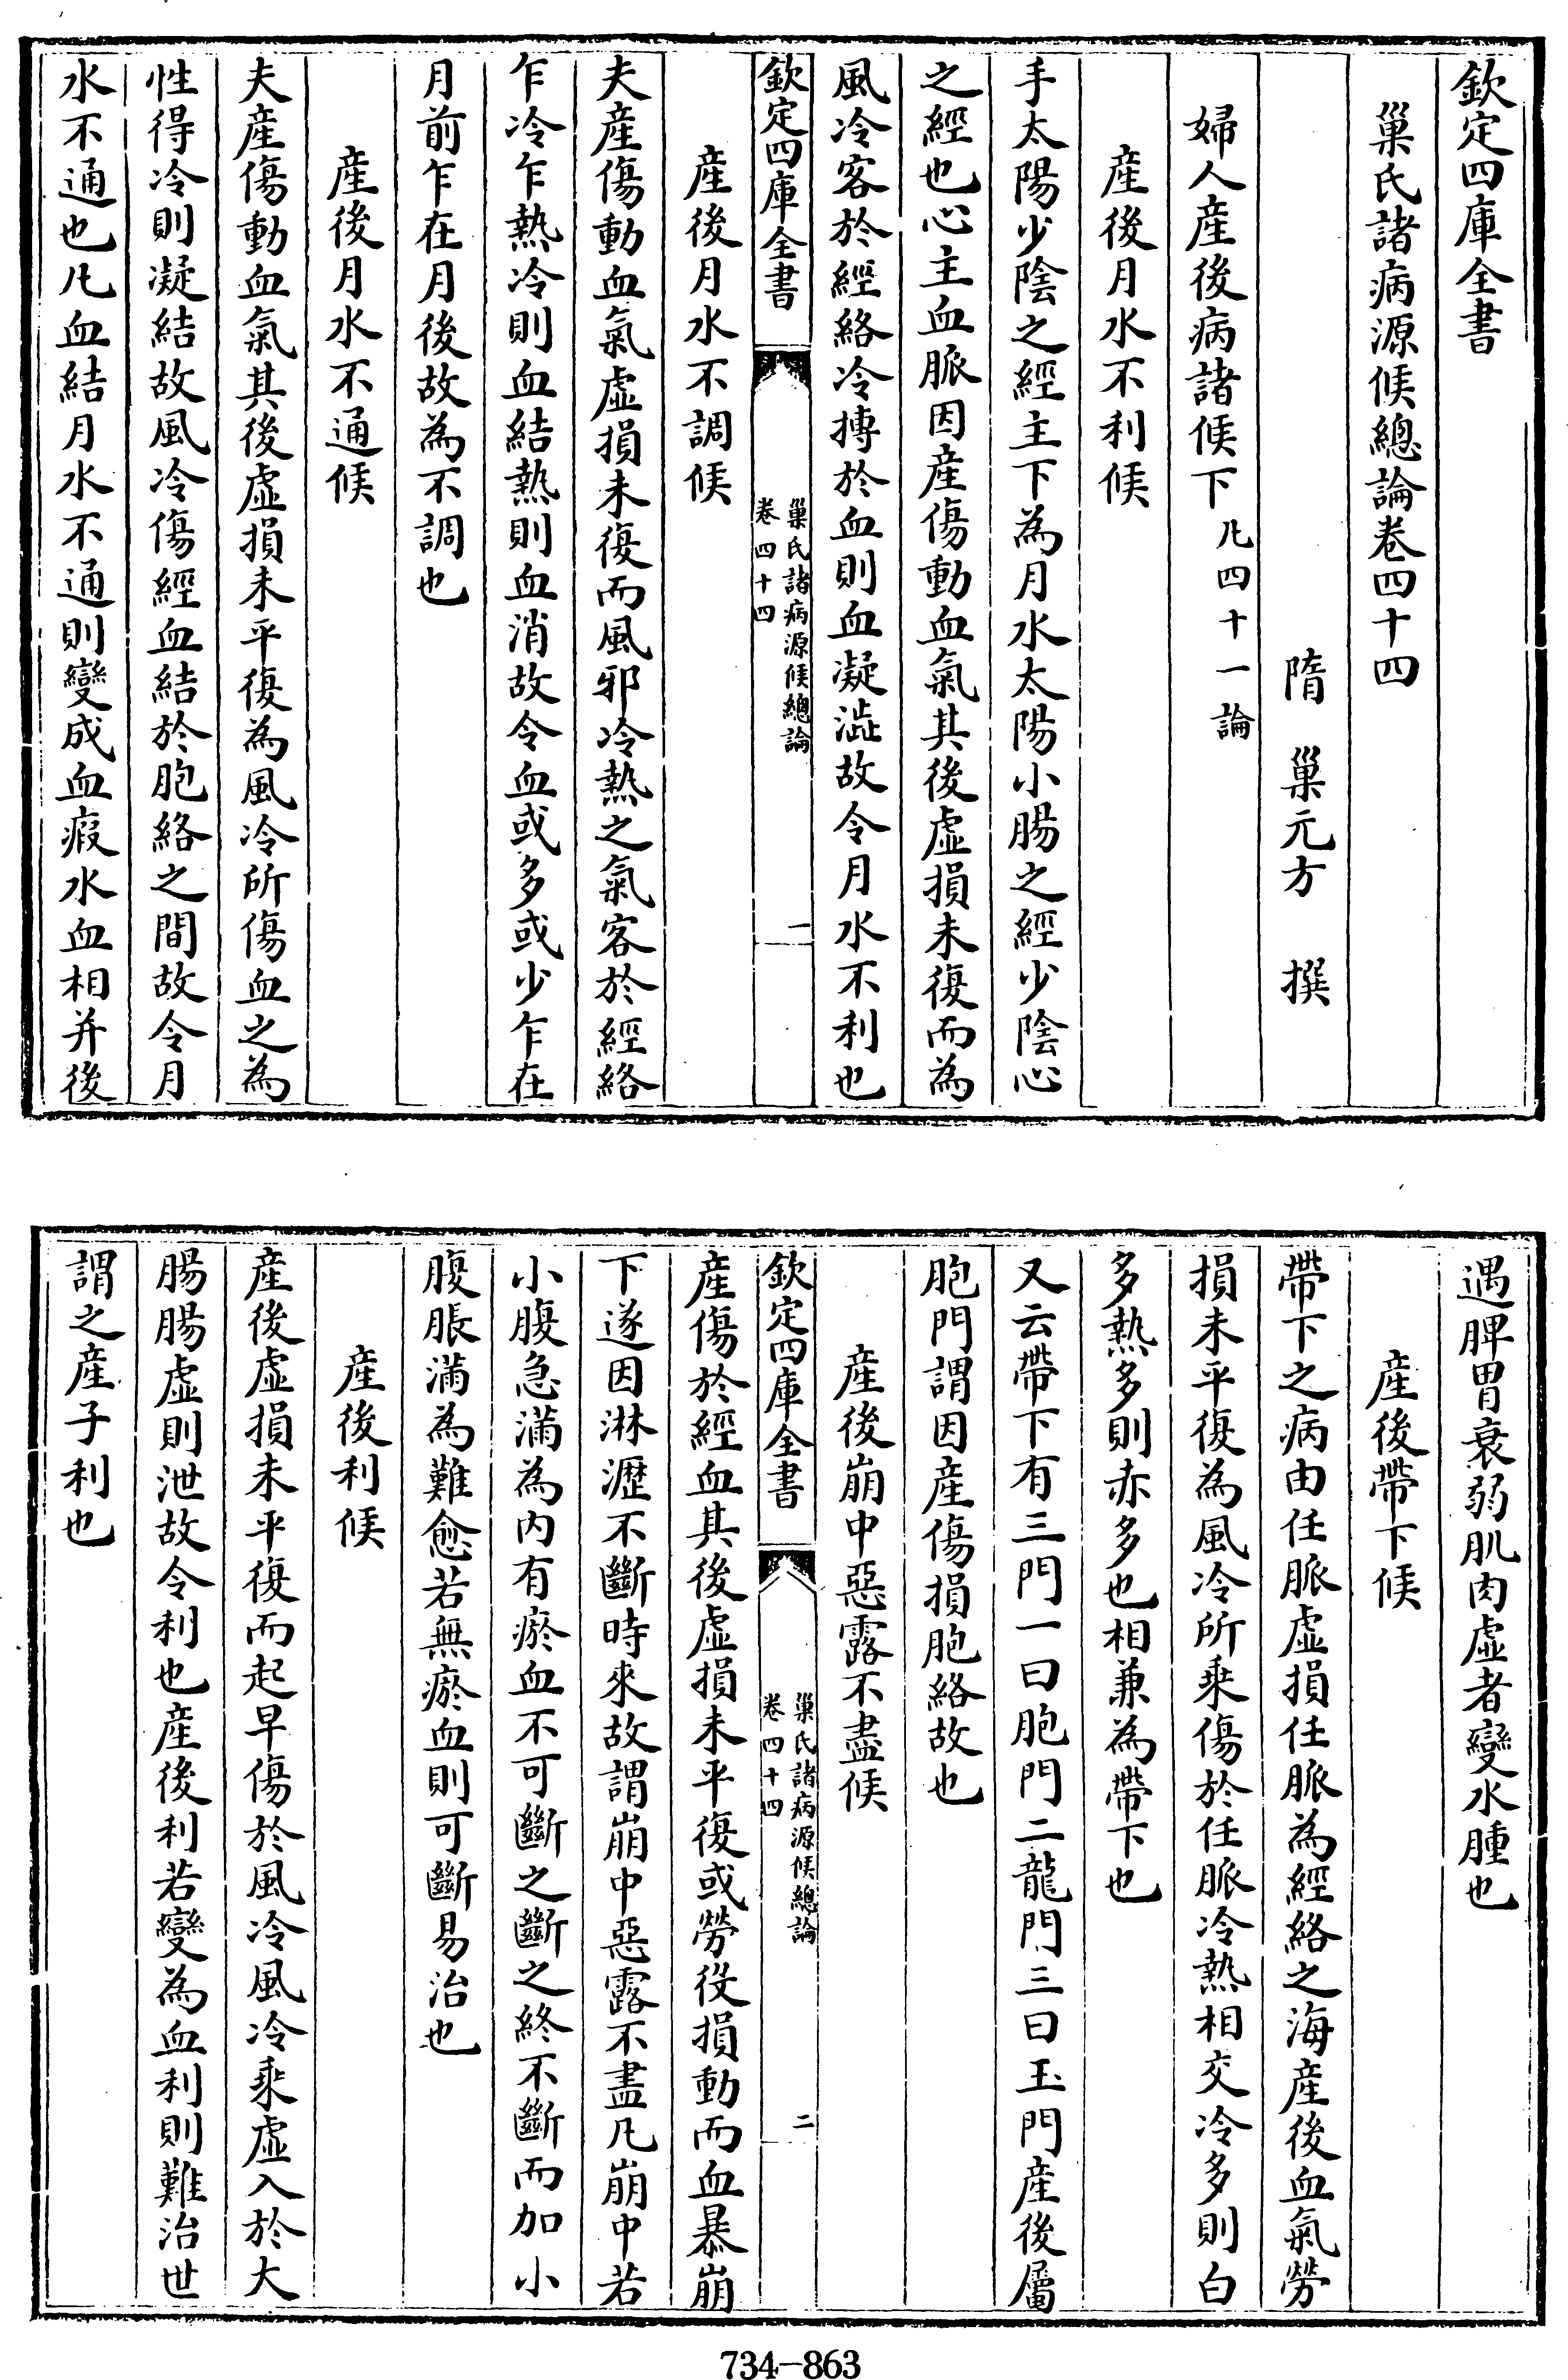 欽定四庫全書
巢氏諸病源候總論卷四十四
隋 巢元方 撰
婦人産後病諸候下凡四十一論
産後月水不利候
手太陽少陰之經主下為月水太陽小腸之經少陰心
之經也心主血脈因産傷動血氣其後虛損未復而為
風冷客於經絡冷摶於血則血凝澁故令月水不利也
欽定四庫全書
巢氏諸病源候總論
卷四十四
一
産後月水不調候
夫産傷動血氣虛損未復而風邪冷熱之氣客於經絡
乍冷乍熱冷則血結熱則血消故令血或多或少乍在
月前乍在月後故為不調也
産後月水不通候
夫産傷動血氣其後虛損未平復為風冷所傷血之為
性得冷則凝結故風冷傷經血結於胞絡之間故令月
水不通也凡血結月水不通則變成血瘕水血相并後
遇脾胃衰弱肌肉虛者變水腫也
産後帶下候
帶下之病由任脈虛損任脈為經絡之海産後血氣勞
損未平復為風冷所乘傷於任脈冷熱相交冷多則白
多熱多則赤多也相兼為帶下也
又云帶下有三門一曰胞門二龍門三曰玉門産後屬
胞門謂因産傷損胞絡故也
産後崩中惡露不盡候
欽定四庫全書
巢氏諸病源候總論
卷四十四
二
産傷於經血其後虛損未平復或勞役損動而血暴崩
下遂因淋瀝不斷時來故謂崩中惡露不盡凡崩中若
小腹急滿為内有瘀血不可斷之斷之終不斷而加小
腹脹滿為難愈若無瘀血則可斷易治也
産後利候
産後虛損未平復而起早傷於風冷風冷乘虛入於大
腸腸虛則泄故令利也産後利若變為血利則難治世
謂之産子利也
734-863